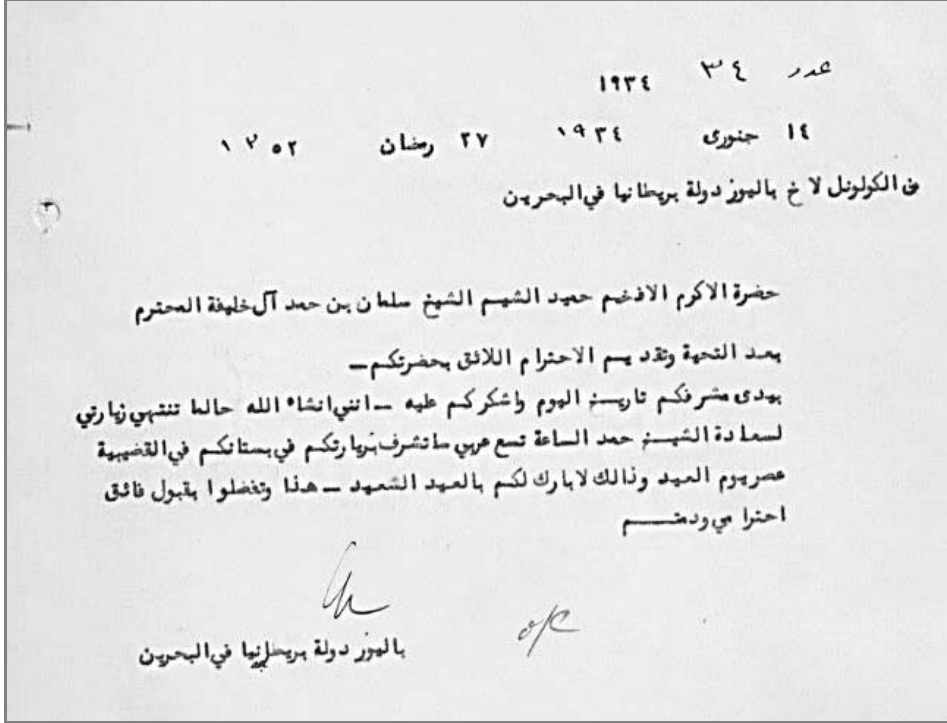 عدد ٣٤ ١٩٣٤
١٤ جنورى ١٩٣٤ ٢٧ رمضان ١٣٥٢
من الكولونل لا خ باليوز دولة بريطانيا في البحرين
حضرة الاكرم الافخم حميد الشيم الشيخ سلمان بن حمد آل خليفة المحترم
بعد التحية وتقديم الاحترام اللائق بحضرتكم ــ
بيدى مشرفكم تاريخ اليوم واشكركم عليه ــ انني انشاء الله حالما تنتهي زيارتي
لسعادة الشيخ حمد الساعة تسع عربي ساتشرف بزيارتكم في بستانكم في القضيبية
عصر يوم العيد وذالك لابارك لكم بالعيد السعيد ــ هذا وتفضلوا بقبول فائق
احترامي ودمتم
o/c
باليوز دولة بريطانيا في البحرين